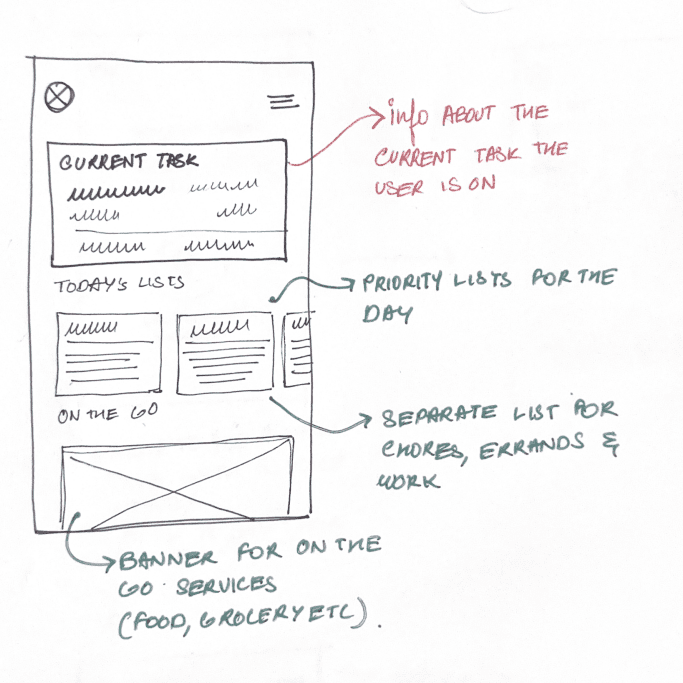 CURRENT TASK
TODAY'S LISTS
ON THE GO
info ABOUT THE
CURRENT TASK THE
USER IS ON
PRIORITY LISTS FOR THE
DAY
SEPARATE LIST FOR
CHORES, ERRANDS &
WORK
BANNER FOR ON THE
GO SERVICES
(FOOD, GROCERY ETC).